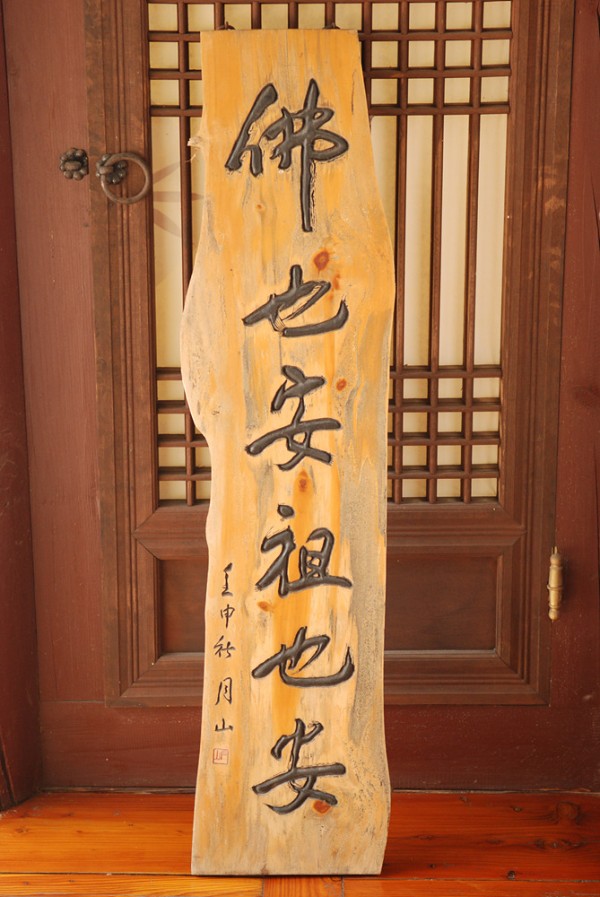 佛也安祖也安
壬申秋月山